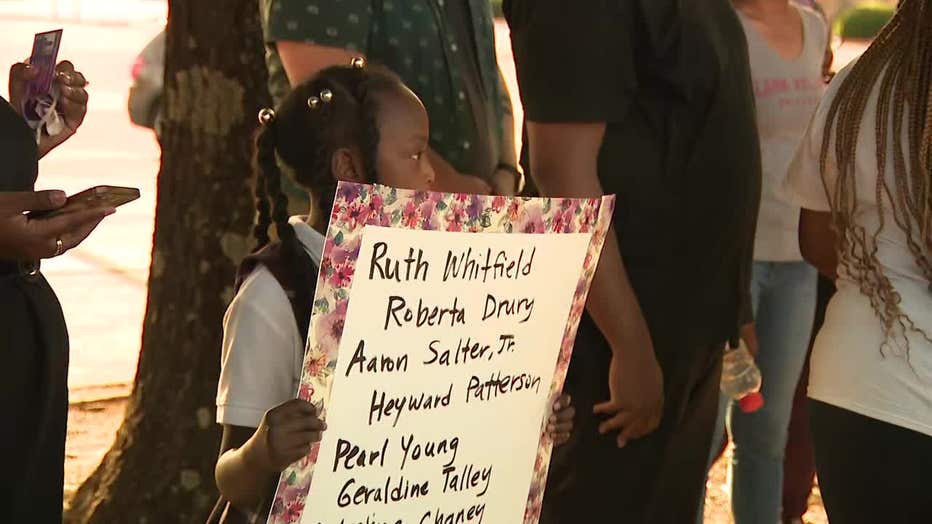 Ruth Whitfield
Roberta Drury
Aaron Salter, Jr.
Heyward Patterson
Pearl Young
Geraldine Talley
Chaney